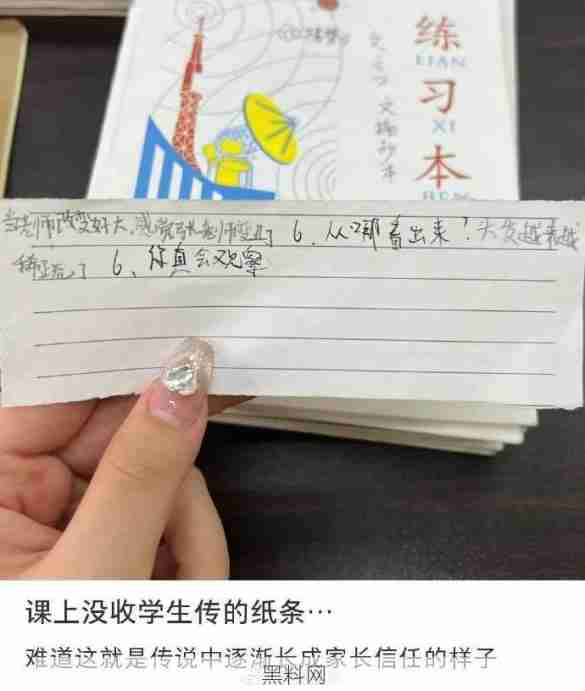 练
LIAN
习
XI
本
BEN
语文 文摘抄本
当老师改变好大,感觉张老师变了 6、从哪看出来?头发越来越
稀疏了 6、你真会观察
课上没收学生传的纸条…
难道这就是传说中逐渐长成家长信任的样子
黑料网